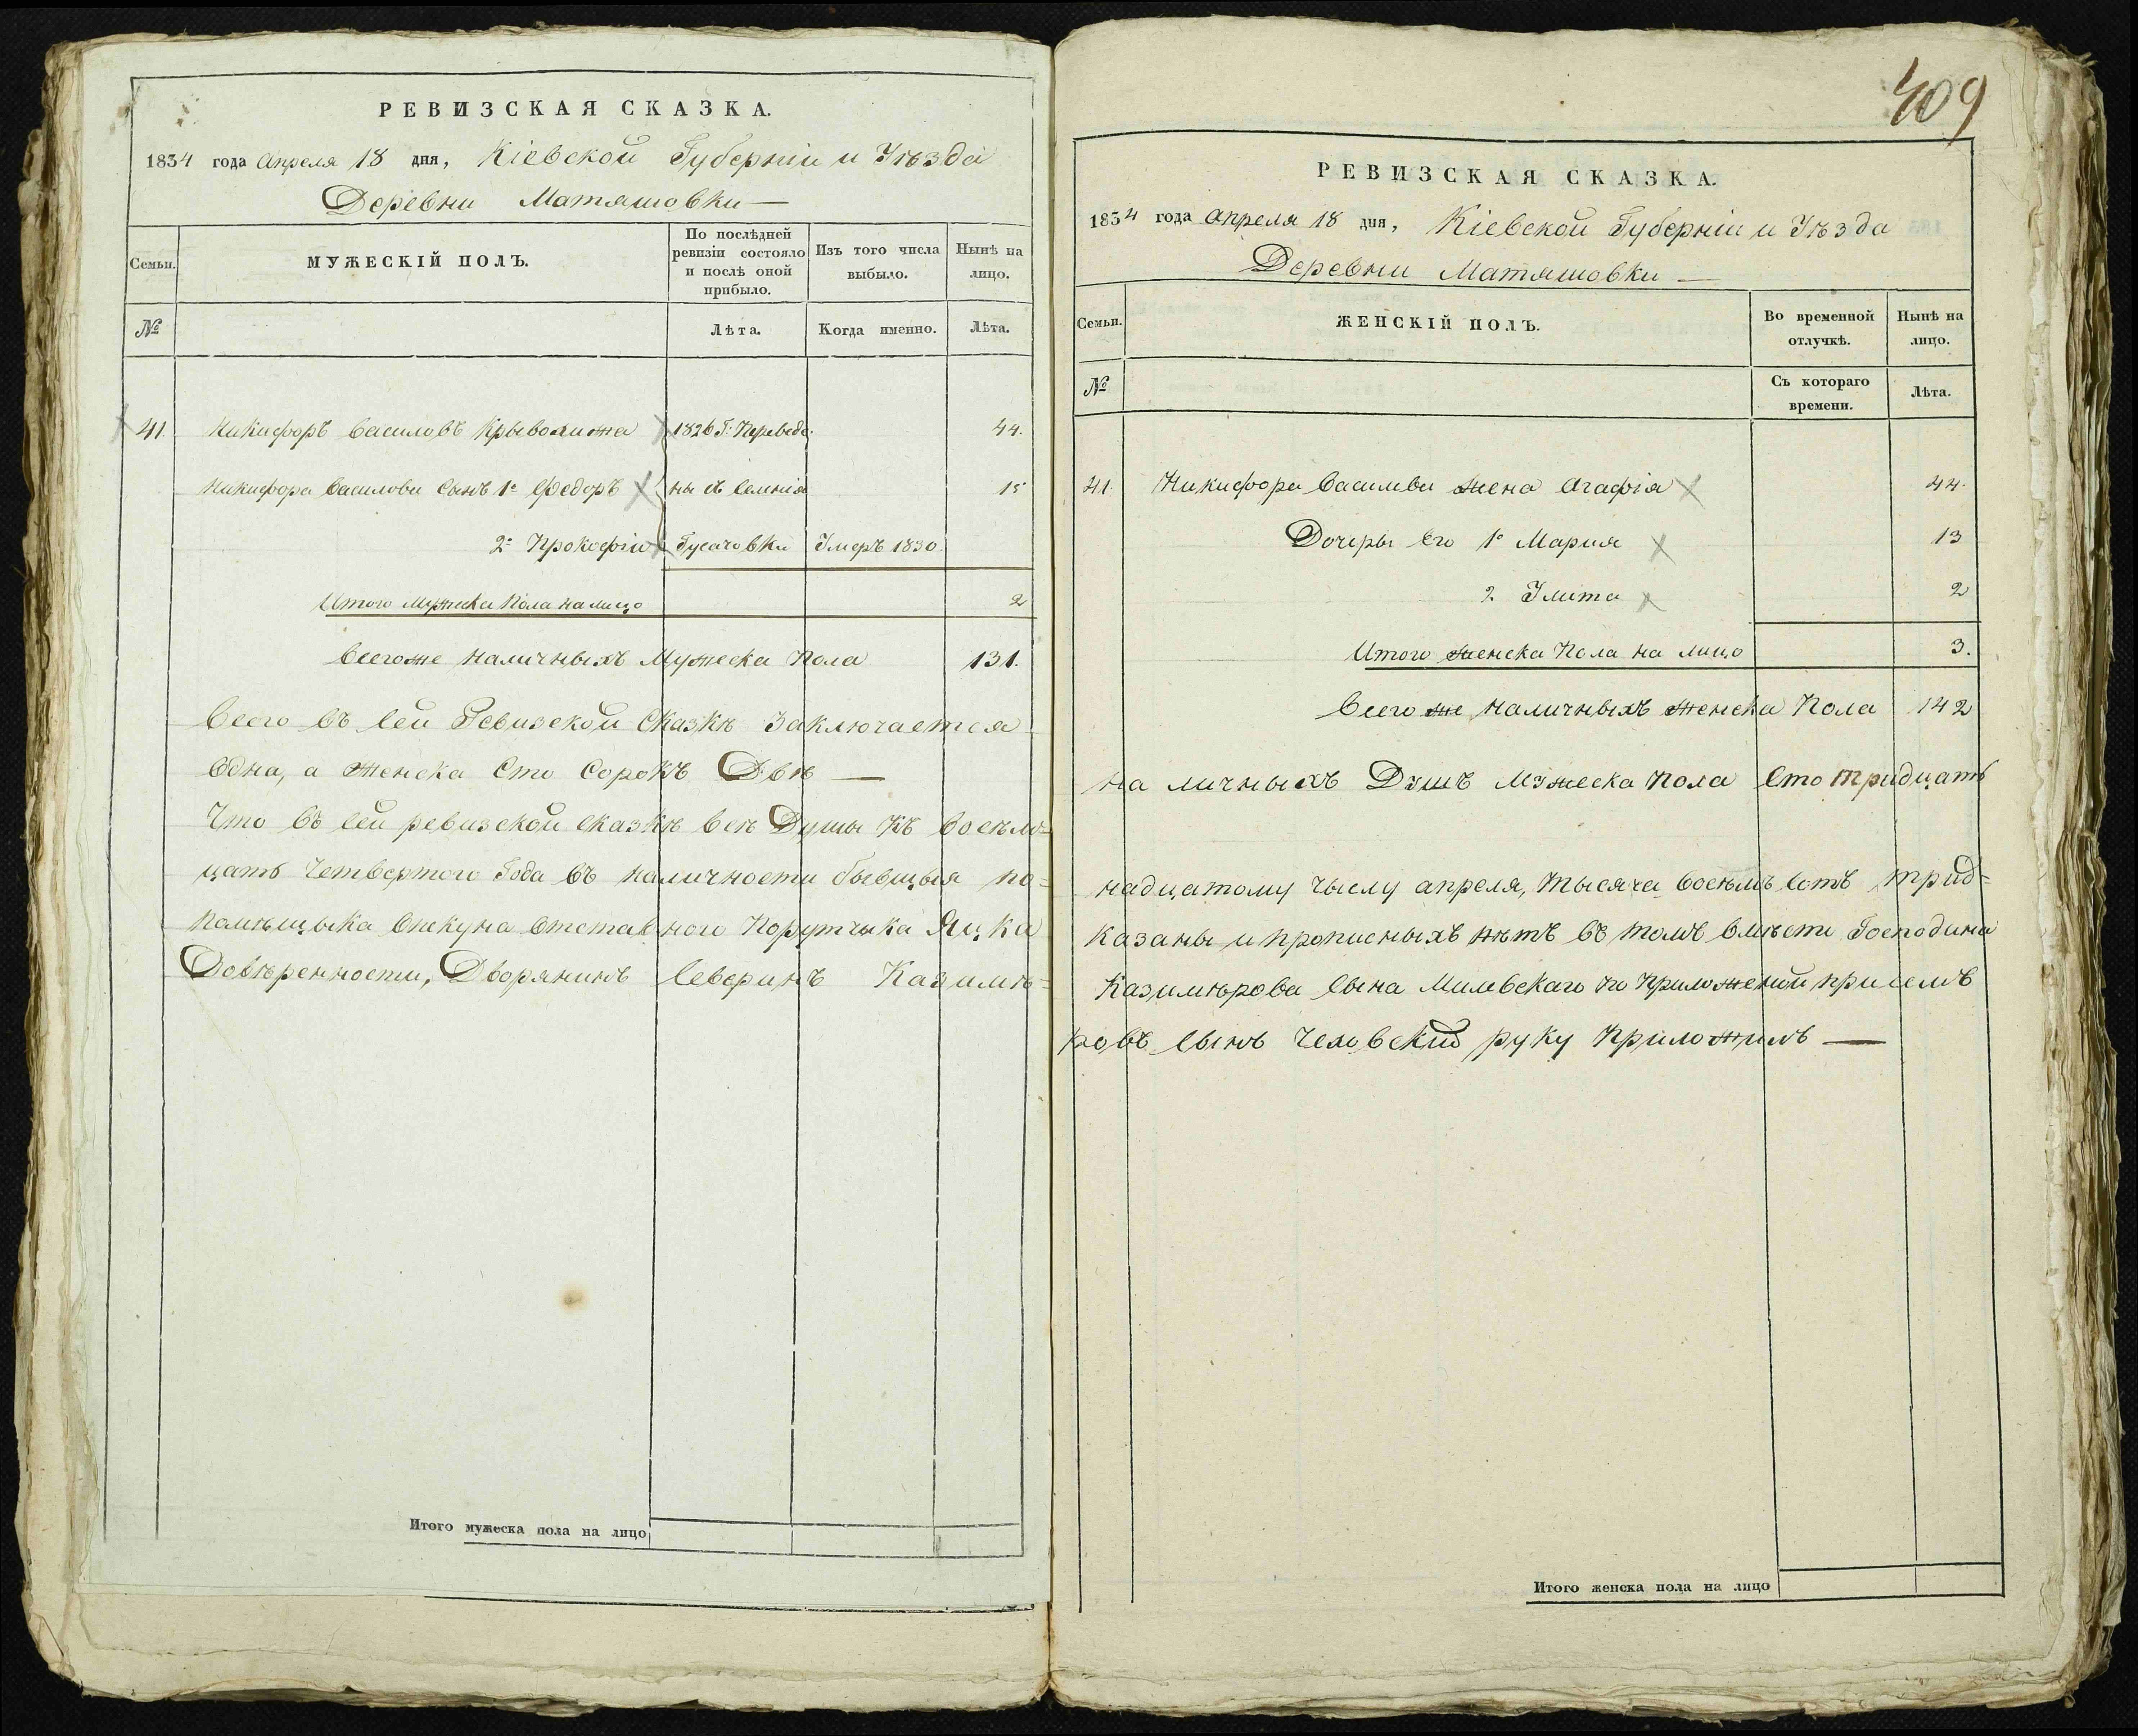 РЕВИЗСКАЯ СКАЗКА.
1834 года Апреля 18 дня, Кіевской Губерніи и Уѣзда
Деревни Матяшовки —
Семьи. МУЖЕСКІЙ ПОЛЪ. По послѣдней ревизіи состояло и послѣ оной прибыло. Изъ того числа выбыло. Нынѣ на лицо.
№ Лѣта. Когда именно. Лѣта.
41. Никифоръ Василовъ 1826 Г: Переведе- 44.
Никифора Василова Сынъ 1й Федоръ ны съ Селенія 15
2й Прокофій Гусачовки Умеръ 1830.
Итого Мужеска Пола на лицо 2
Всегоже наличныхъ Мужеска Пола 131.
Всего въ сей Ревизской Сказкѣ Заключается
Одна, а Женска Сто Сорокъ Двѣ —
Что въ сей ревизской сказкѣ всѣ Души Къ Восѣм-
цать Четвертого Года въ наличности бывщыя по-
Помѣщыка Опекуна Отставного Порутчыка Яцка
Довѣренности, Дворянинъ Северинъ Казимѣ-
Итого мужеска пола на лицо
409
РЕВИЗСКАЯ СКАЗКА.
1834 года Апреля 18 дня, Кіевской Губерніи и Уѣзда
Деревни Матяшовки —
Семьи. ЖЕНСКІЙ ПОЛЪ. Во временной отлучкѣ. Нынѣ на лицо.
№ Съ котораго времени. Лѣта.
41. Никифора Василева жена Агафія 44.
Дочеры Его 1я Мария 13
2. Улита 2
Итого женска Пола на лицо 3.
Всего же наличныхъ женска Пола 142
наличныхъ Душъ Мужеска пола Сто тридцать
надцатому чыслу апреля, тысяча восѣмъ сотъ трид-
казаны и прописныхъ нѣтъ въ томъ вмѣсти Господина
Казимѣрова сына Милевскаго по приложеной при семъ
ровъ сынъ Чеховский руку приложилъ —
Итого женска пола на лицо